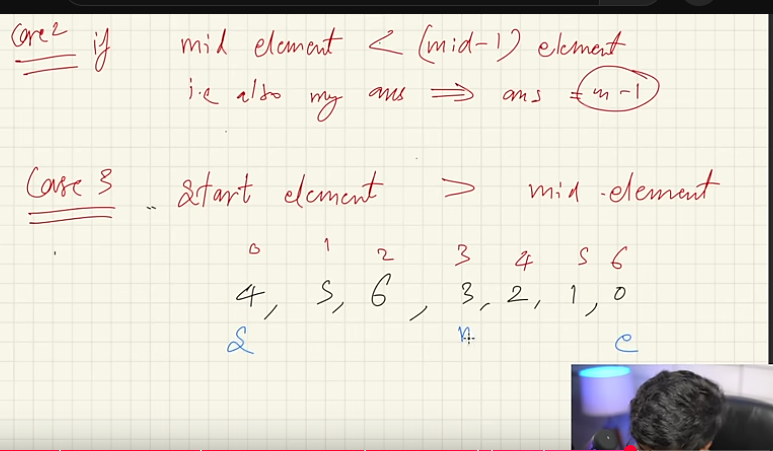 Case 2 if mid element < (mid-1) element
i.e also my ans ⇒ ans = m-1
Case 3 Start element > mid element
0 1 2 3 4 5 6
4, 5, 6, 3, 2, 1, 0
S m e